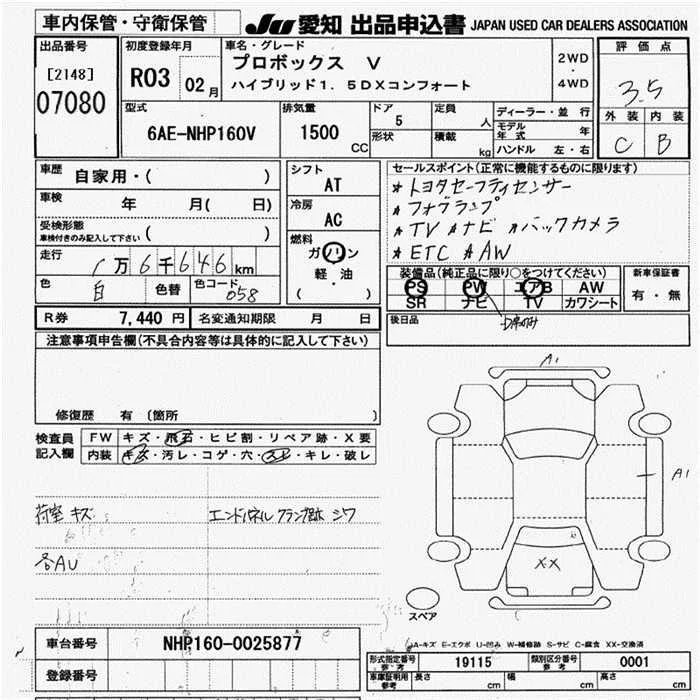 車内保管・守衛保管
JU 愛知 出品申込書 JAPAN USED CAR DEALERS ASSOCIATION
出品番号
[2148]
07080
初度登録年月
R03 02月
車名・グレード
プロボックス V
ハイブリッド1.5DXコンフォート
2WD
・
4WD
評価点
3.5
外装 内装
C B
型式
6AE-NHP160V
排気量
1500
CC
ドア
5
定員
人
形状
積載
kg
ディーラー・並行
モデル年式 年
ハンドル 左・右
車歴
自家用・( )
車検
年 月( 日)
受検形態
車検付きのみ記入して下さい ( )
走行
1万6千646km
色
白
色替
色コード
058
シフト
AT
冷房
AC
燃料
ガソリン
軽・油
( )
セールスポイント(正常に機能するものに限ります)
*トヨタセーフティセンサー
*フォグランプ
*TV *ナビ *バックカメラ
*ETC *AW
装備品(純正品に限り○をつけてください)
PS PW エアB AW
SR ナビ TV カワシート
新車保証書
有・無
後日品
R券 7,440円
名変通知期限 月 日
注意事項申告欄(不具合内容等は具体的に記入して下さい)
修復歴 有 〔箇所 〕
検査員
記入欄
FW キズ・飛石・ヒビ割・リペア跡・X要
内装 キズ・汚レ・コゲ・穴・スレ・キレ・破レ
荷室キズ
エンドパネル クランプ跡 シワ
各AU
A1
A1
XX
スペア
A-キズ E-エクボ U-凹み W-補修跡 S-サビ C-腐食 XX-交換済
車台番号
NHP160-0025877
登録番号
形式指定番号
参考
19115
類別区分番号
参考
0001
車庫証明用
参考
長さ cm
幅 cm
高さ cm